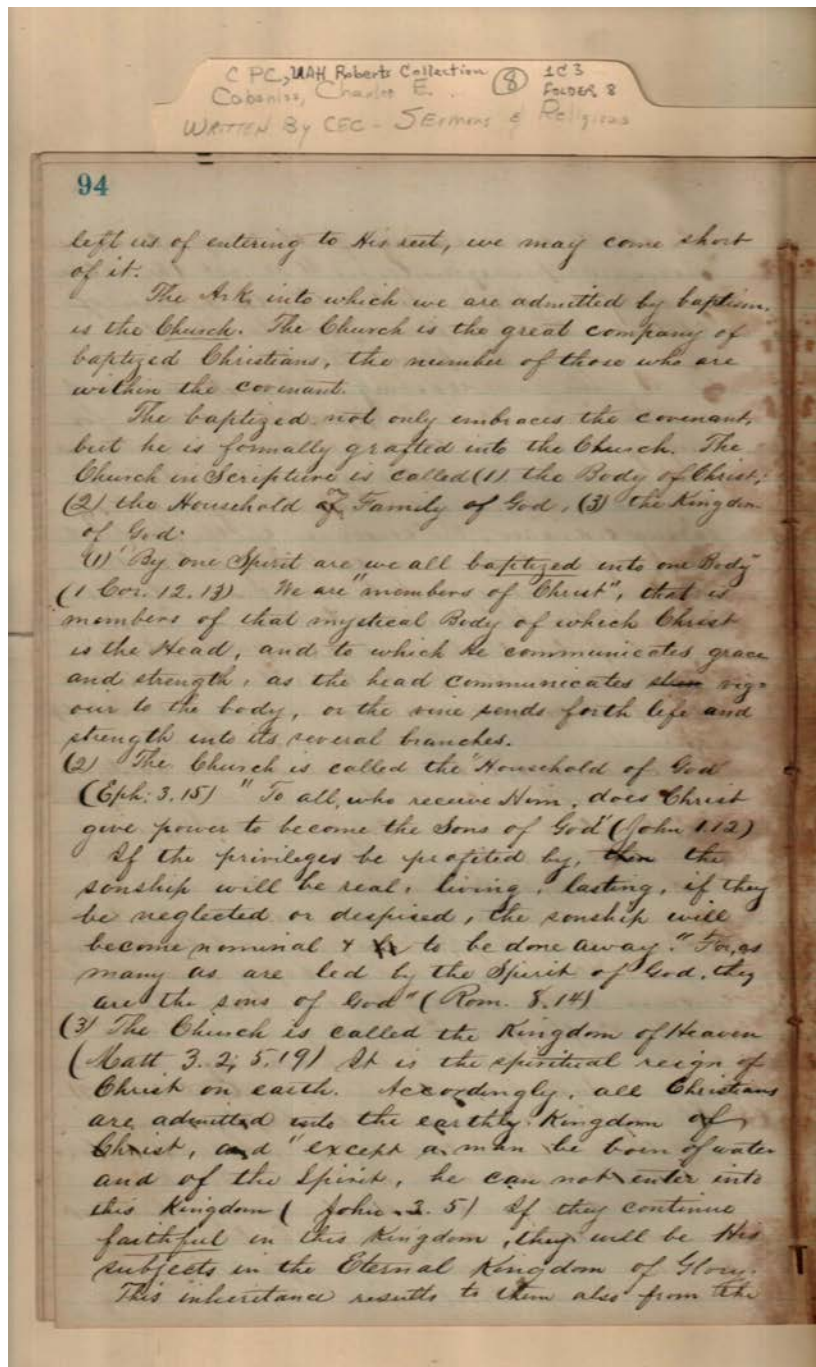 C PC, UAH Roberts Collection
Cabaniss, Charles E.
8
1C3
FOLDER 8
WRITTEN By CEC - SErmons & Religious
94
left us of entering to His rest, we may come short
of it.
The Ark, into which we are admitted by baptism,
is the Church. The Church is the great company of
baptized Christians, the number of those who are
within the covenant.
The baptized not only embraces the covenant,
but he is formally grafted into the Church. The
Church in Scripture is called (1) the Body of Christ;
(2) the Household Family of God, (3) the Kingdom
of God.
(1) "By one Spirit are we all baptized into one Body"
(1 Cor. 12.13) We are "members of Christ", that is
members of that mystical Body of which Christ
is the Head, and to which he communicates grace
and strength, as the head communicates vig=
our to the body, or the vine sends forth life and
strength into its several branches.
(2) The Church is called the "Household of God"
(Eph: 3.15) "To all, who receive Him, does Christ
give power to become the Sons of God" (John 1.12)
If the privileges be profited by, the
sonship will be real, living, lasting, if they
be neglected or despised, the sonship will
become nominal & to be done away. "For, as
many as are led by the Spirit of God, they
are the sons of God" (Rom. 8.14)
(3) The Church is called the Kingdom of Heaven
(Matt 3.2; 5.19) It is the spiritual reign of
Christ on earth. Accordingly, all Christians
are admitted into the earthly Kingdom of
Christ, and "except a man be born of water
and of the Spirit, he can not enter into
this Kingdom (John 3.5) If they continue
faithful in this Kingdom, they will be His
subjects in the Eternal Kingdom of Glory.
This inheritance results to them also from the